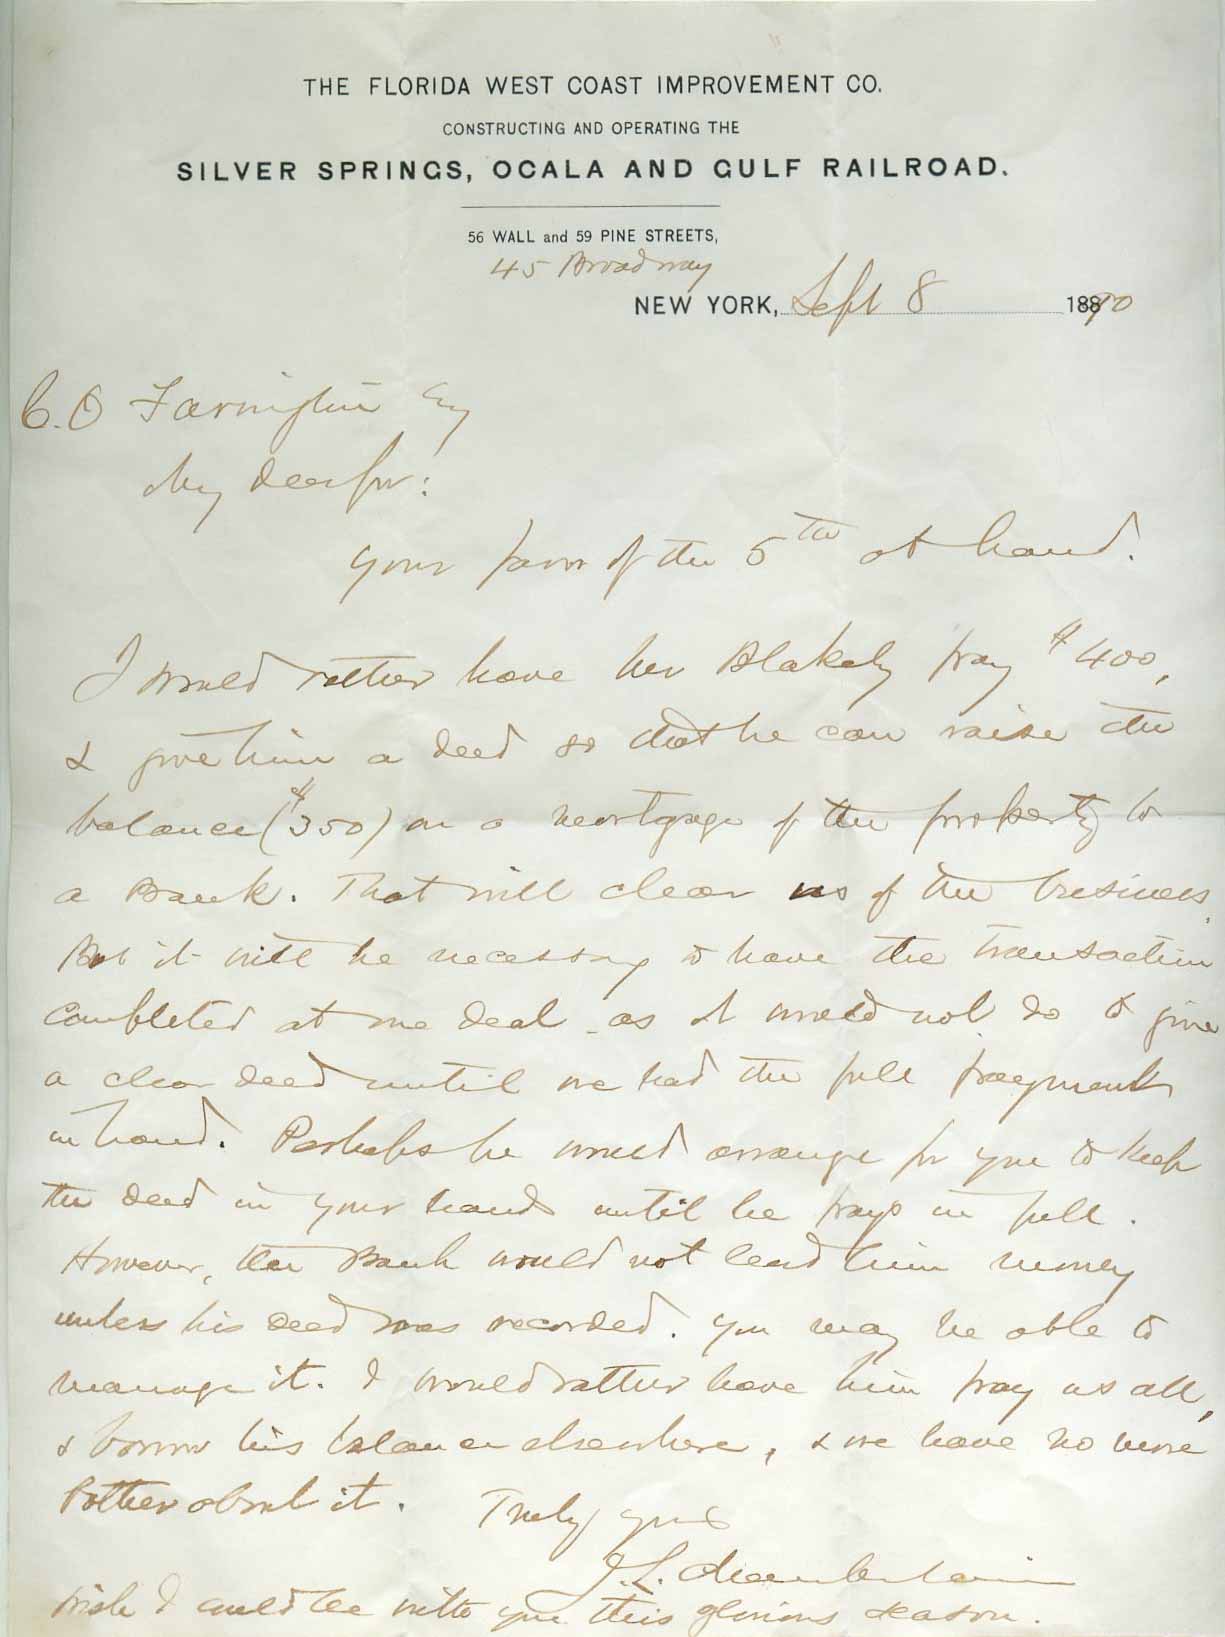 THE FLORIDA WEST COAST IMPROVEMENT CO.
CONSTRUCTING AND OPERATING THE
SILVER SPRINGS, OCALA AND GULF RAILROAD.
56 WALL and 59 PINE STREETS,
45 Broadway
NEW YORK, Sept 8 1890
C. O Farrington Esq
My dear Sir:
Your favor of the 5th at hand.
I would rather have Blakely pay $400,
& give him a deed so that he can raise the
balance ($350) on a mortgage of the property to
a Bank. That will clear us of the business.
But it will be necessary to have the transaction
completed at one deal - as it would not do to give
a clear deed until we had the full payment
in hand. Perhaps he would arrange for you to keep
the deed in your hands until he pays in full.
However, the Bank would not lend him money
unless his deed was recorded. You may be able to
manage it. I would rather have him pay us all,
& borrow his balance elsewhere, & we have no more
bother about it. Truly yours
J. L. Chamberlain
Wish I could be with you this glorious season.